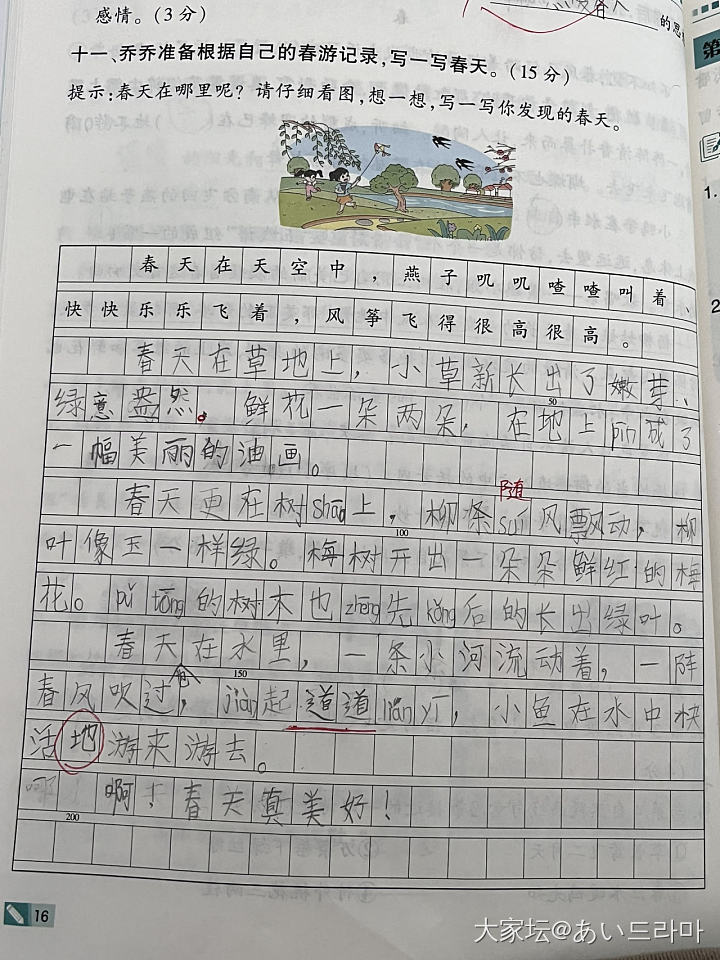 感情。(3分)
的思
十一、乔乔准备根据自己的春游记录,写一写春天。(15分)
提示:春天在哪里呢?请仔细看图,想一想,写一写你发现的春天。
第
1.
2
春天在天空中,燕子叽叽喳喳叫着、
快快乐乐飞着,风筝飞得很高很高。
春天在草地上,小草新长出了嫩芽、
绿意盎然。鲜花一朵两朵,在地上pīn成了
50
一幅美丽的油画。
随
春天更在树shāo上,柳条suí风飘动,柳
100
叶像玉一样绿。梅树开出一朵朵鲜红的梅
花。pǔ tōng的树木也zhēng先kǒng后的长出绿叶。
春天在水里,一条小河流动着,一阵
150
春风吹过,jiàn起道道lián yī,小鱼在水中快
活地游来游去。
啊!春天真美好!
200
16
大家坛@あい드라마